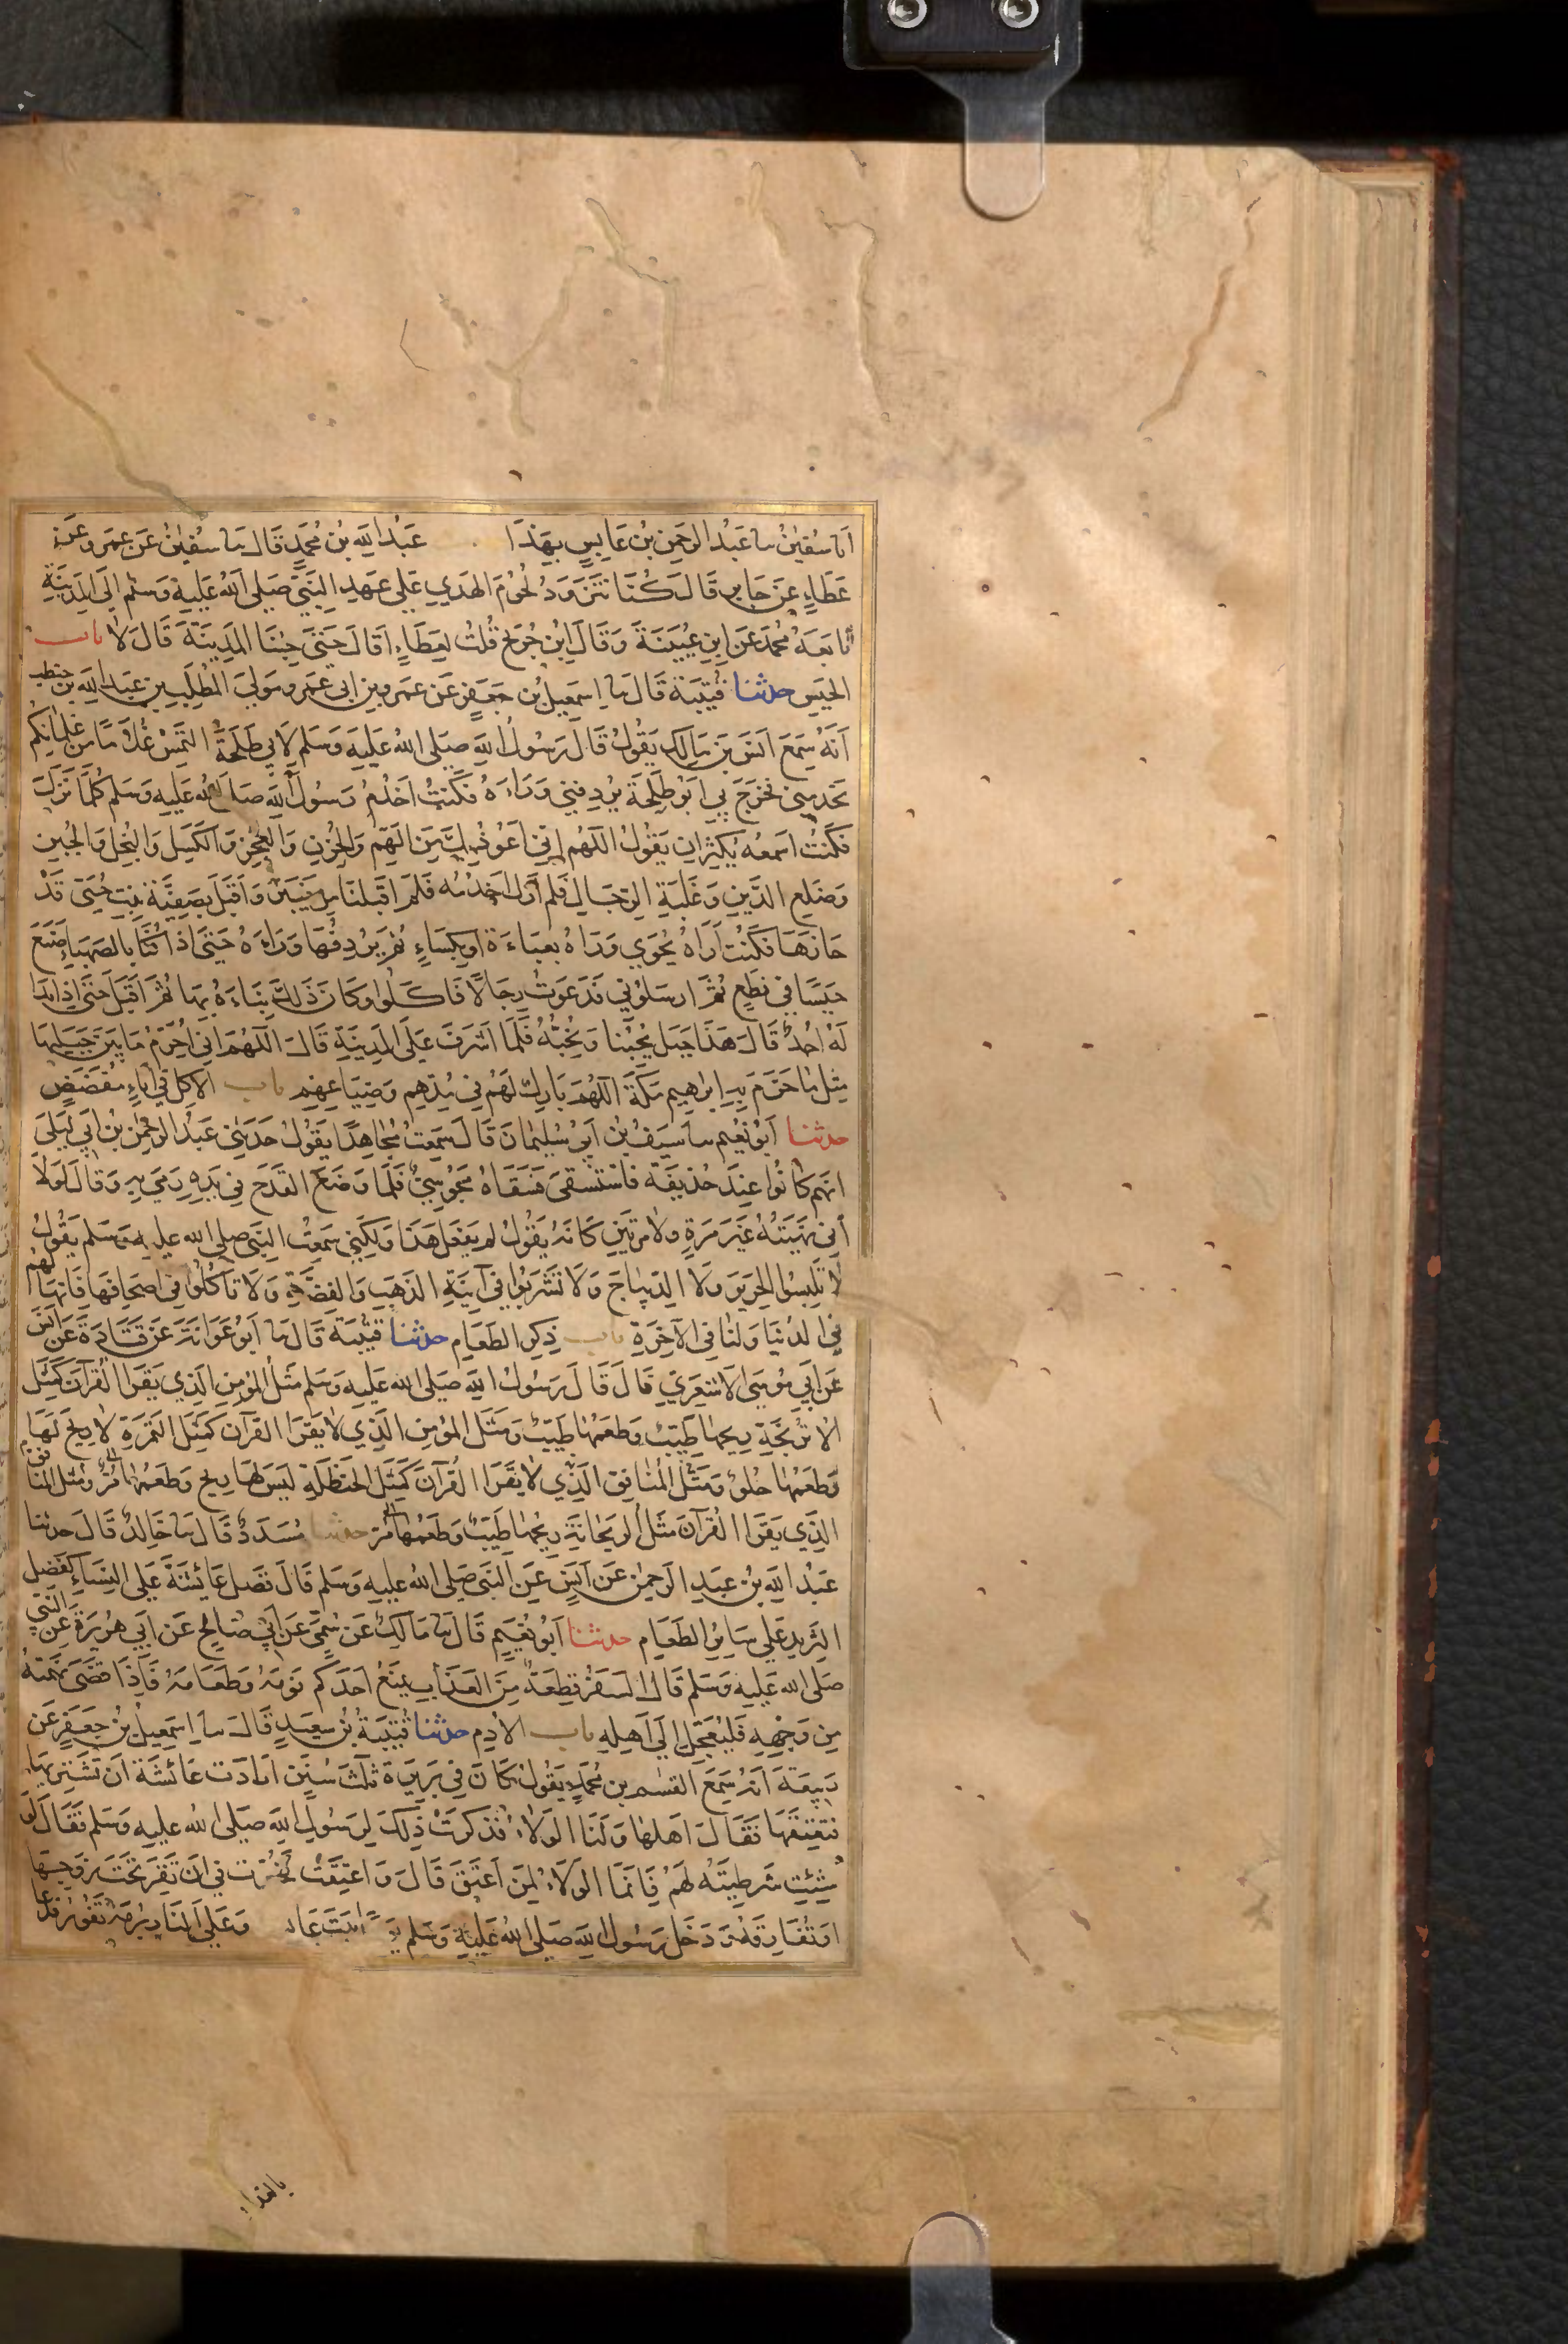 انا سفين سا عبد الرحمن بن عابس بهذا عبد الله بن محمد قال سا سفين عن عمرو عن
عطاء عن جابر قال كنا نتزود لحوم الهدي على عهد النبي صلى الله عليه وسلم الى المدينة
تابعه محمد عن ابن عيينة وقال ابن جريج قلت لعطاء اقال حتى جئنا المدينة قال لا باب
الحيس حدثنا قتيبة قال سا اسمعيل بن جعفر عن عمرو بن ابي عمرو مولى المطلب بن عبد الله بن حنطب
انه سمع انس بن مالك يقول قال رسول الله صلى الله عليه وسلم لابي طلحة التمس غلاما من غلمانكم
يخدمني فخرج بي ابو طلحة يردفني وراءه فكنت اخدم رسول الله صلى الله عليه وسلم كلما نزل
فكنت اسمعه يكثر ان يقول اللهم اني اعوذ بك من الهم والحزن والعجز والكسل والبخل والجبن
وضلع الدين وغلبة الرجال فلم ازل اخدمه فلم اقبلنا من خيبر واقبل بصفية بنت حيي قد
حازها فكنت اراه يحوي وراه بعباءة او بكساء ثم يردفها وراءه حتى اذا كنا بالصهباء صنع
حيسا في نطع ثم ارسلوني فدعوت رجالا فاكلوا وكان ذلك بناءه بها ثم اقبل حتى اذا بدا
له احد قال هذا جبل يحبنا ونحبه فلما اشرف على المدينة قال اللهم اني احرم ما بين جبليها
مثل ما حرم به ابراهيم مكة اللهم بارك لهم في مدهم وضياعهم باب الاكل في اناء مفضض
حدثنا ابو نعيم سا سيف بن ابي سليمان قال سمعت مجاهدا يقول حدثني عبد الرحمن بن ابي ليلى
انهم كانوا عند حذيفة فاستسقى فسقاه مجوسي فلما وضع القدح في يده رمى به وقال لولا
اني نهيته غير مرة ولا مرتين كانه يقول لم يفعل هذا ولكني سمعت النبي صلى الله عليه وسلم يقول
لا تلبسوا الحرير ولا الديباج ولا تشربوا في آنية الذهب والفضة ولا تاكلوا في صحافها فانها لهم
في الدنيا ولنا في الآخرة باب ذكر الطعام حدثنا قتيبة قال سا ابو عوانة عن قتادة عن انس
عن ابي موسى الاشعري قال قال رسول الله صلى الله عليه وسلم مثل المؤمن الذي يقرا القرآن كمثل
الاترنجة ريحها طيب وطعمها طيب ومثل المؤمن الذي لا يقرا القرآن كمثل التمرة لا ريح لها
وطعمها حلو ومثل المنافق الذي لا يقرا القرآن كمثل الحنظلة ليس لها ريح وطعمها مر ومثل المنافق
الذي يقرا القرآن مثل الريحانة ريحها طيب وطعمها مر حدثنا مسدد قال سا خالد قال حدثنا
عبد الله بن عبد الرحمن عن انس عن النبي صلى الله عليه وسلم قال فضل عائشة على النساء كفضل
الثريد على سائر الطعام حدثنا ابو نعيم قال سا مالك عن سمي عن ابي صالح عن ابي هريرة عن النبي
صلى الله عليه وسلم قال السفر قطعة من العذاب يمنع احدكم نومه وطعامه فاذا قضى نهمته
من وجهه فليعجل الى اهله باب الادم حدثنا قتيبة بن سعيد قال سا اسمعيل بن جعفر عن
ربيعة انه سمع القسم بن محمد يقول كان في بريرة ثلث سنن ارادت عائشة ان تشتريها
فتعتقها فقال اهلها ولنا الولاء فذكرت ذلك لرسول الله صلى الله عليه وسلم فقال لو
شئت شرطيته لهم فانما الولاء لمن اعتق قال واعتقت فخيرت في ان تقر تحت زوجها
او تفارقه ودخل رسول الله صلى الله عليه وسلم وعلى النار برمة تفور فدعا
بالغداء